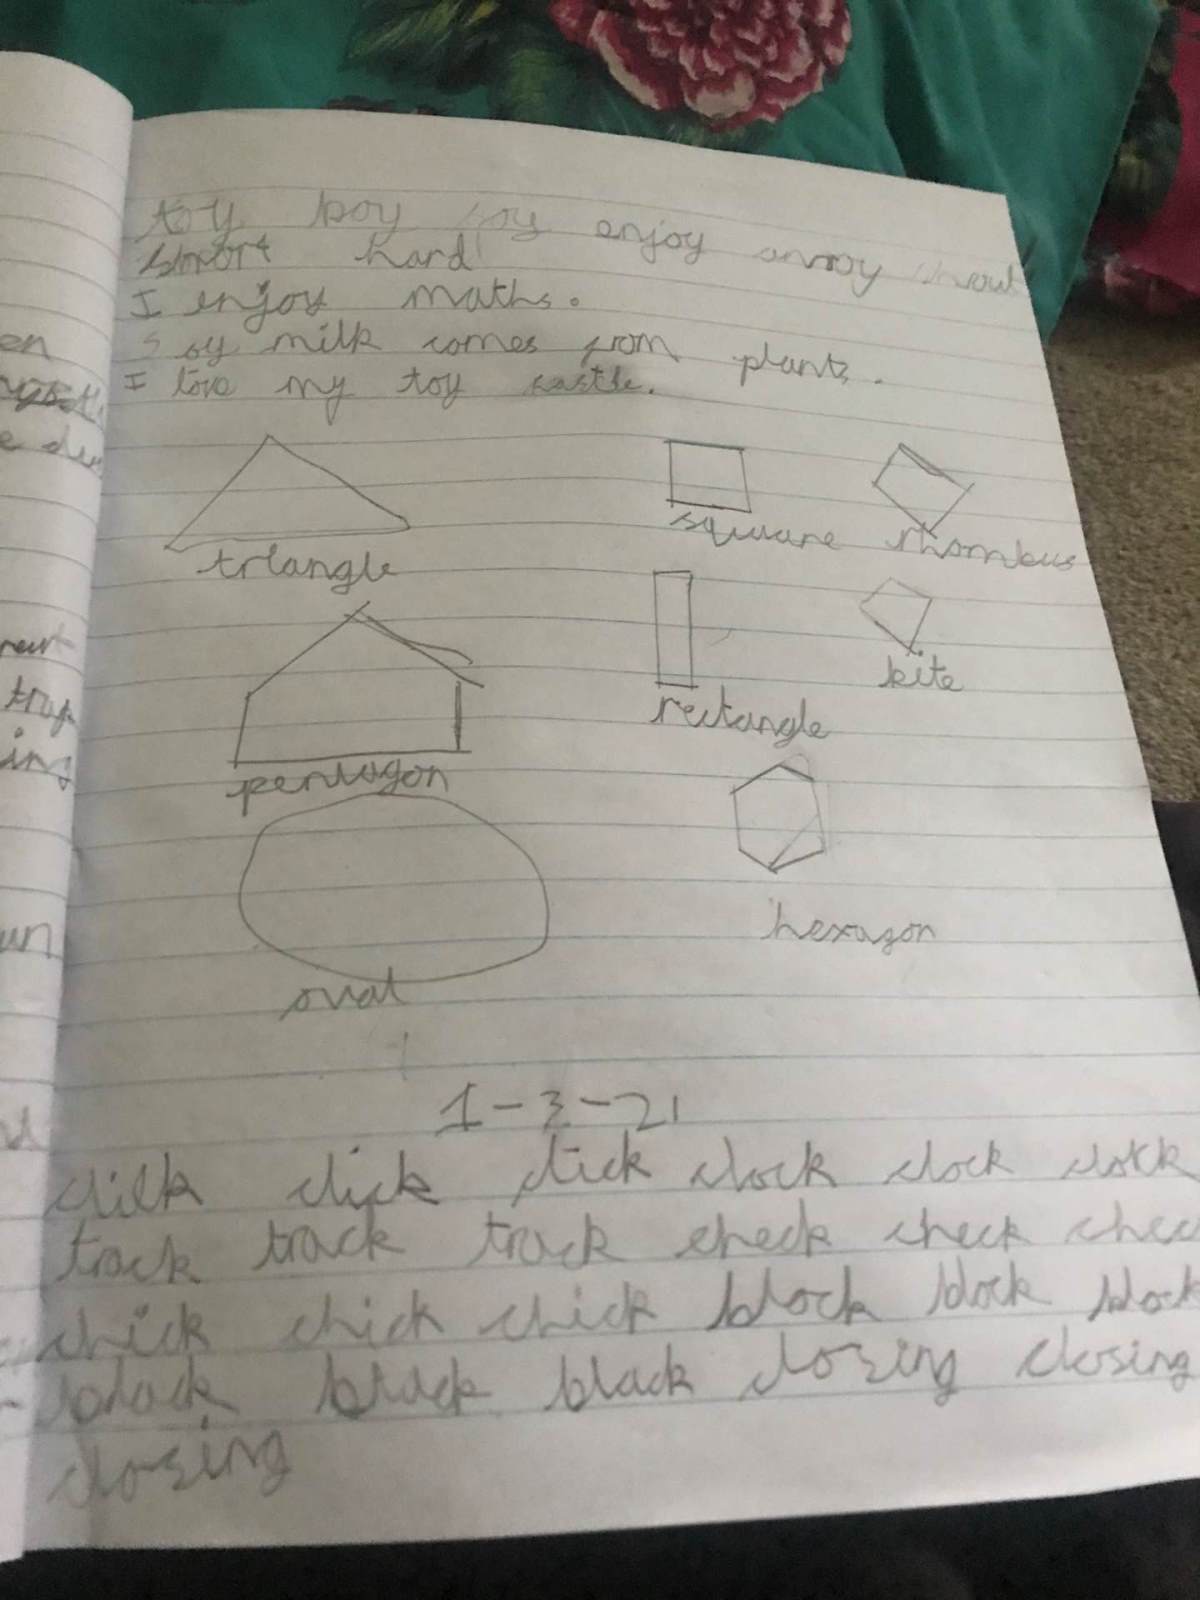 toy boy soy enjoy annoy
hard
I enjoy maths.
Soy milk comes from plants.
I love my toy castle.
triangle
square rhombus
rectangle
kite
pentagon
hexagon
oval
1-3-21
click click click clock clock clock
track track track check check chec
chick chick chick block block block
black black black closing closing
closing
en
ing
un